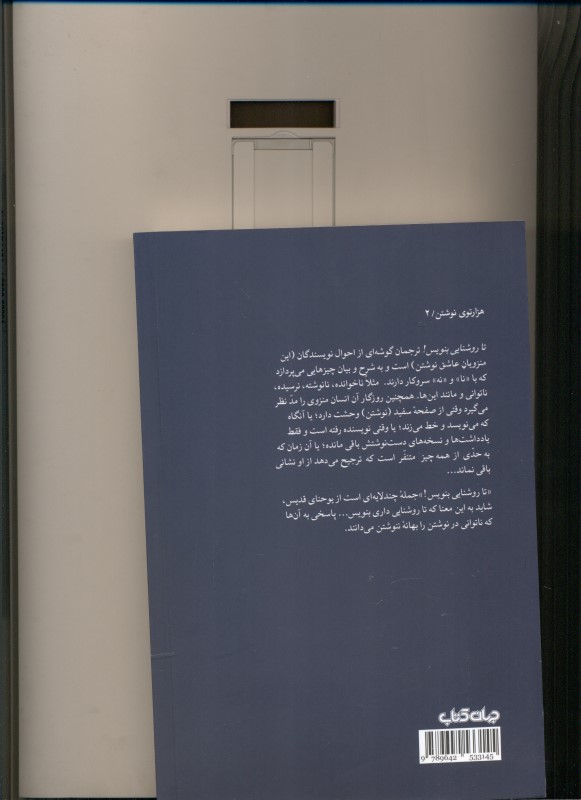 هزارتوی نوشتن/ ۲
تا روشنایی بنویس! ترجمان گوشه‌ای از احوال نویسندگان (این
منزویانِ عاشق نوشتن) است و به شرح و بیان چیزهایی می‌پردازد
که با «نا» و «نه» سروکار دارند. مثلاً ناخوانده، نانوشته، نرسیده،
ناتوانی و مانند این‌ها. همچنین روزگار آن انسان منزوی را مدّ نظر
می‌گیرد وقتی از صفحهٔ سفید (نوشتن) وحشت دارد؛ یا آنگاه
که می‌نویسد و خط می‌زند؛ یا وقتی نویسنده رفته است و فقط
یادداشت‌ها و نسخه‌های دست‌نوشتش باقی مانده؛ یا آن زمان که
به حدّی از همه چیز متنفّر است که ترجیح می‌دهد از او نشانی
باقی نماند...
«تا روشنایی بنویس!» جملهٔ چندلایه‌ای است از یوحنای قدیس،
شاید به این معنا که تا روشنایی داری بنویس... پاسخی به آن‌ها
که ناتوانی در نوشتن را بهانهٔ ننوشتن می‌دانند.
جهان کتاب
9 789642 533145